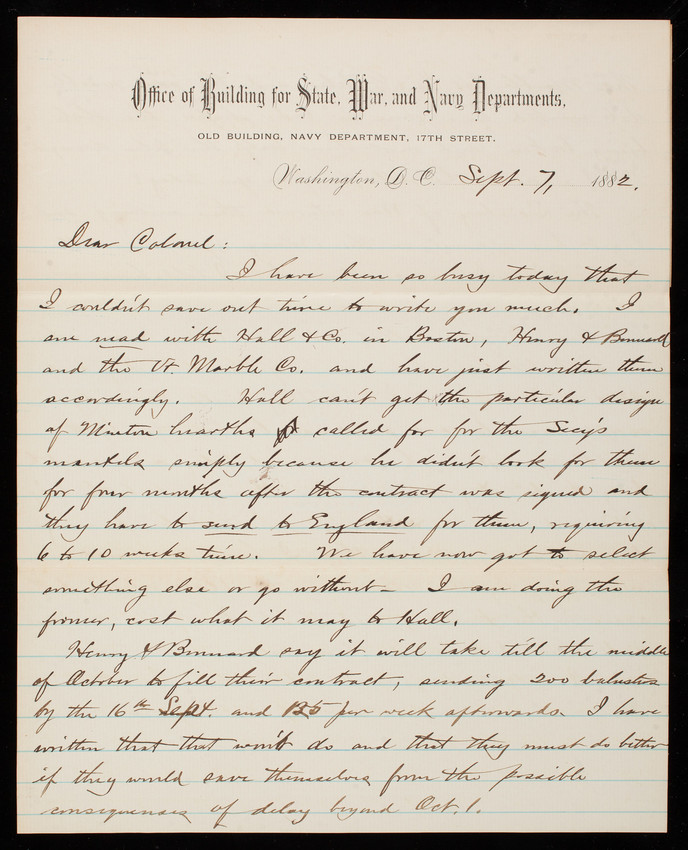 Office of Building for State, War, and Navy Departments,
OLD BUILDING, NAVY DEPARTMENT, 17TH STREET.
Washington, D. C. Sept. 7, 1882.
Dear Colonel:
I have been so busy today that
I couldn't save out time to write you much. I
am mad with Hall & Co. in Boston, Henry & Bonnard
and the Vt. Marble Co. and have just written them
accordingly. Hall can't get the particular design
of Minton hearths called for for the Secy's
mantels simply because he didn't look for them
for four months after the contract was signed and
they have to send to England for them, requiring
6 to 10 weeks time. We have now got to select
something else or go without - I am doing the
former, cost what it may to Hall.
Henry & Bonnard say it will take till the middle
of October to fill their contract, sending 200 balusters
by the 16th Sept. and 125 per week afterwards. I have
written that that won't do and that they must do better
if they would save themselves from the possible
consequences of delay beyond Oct. 1.